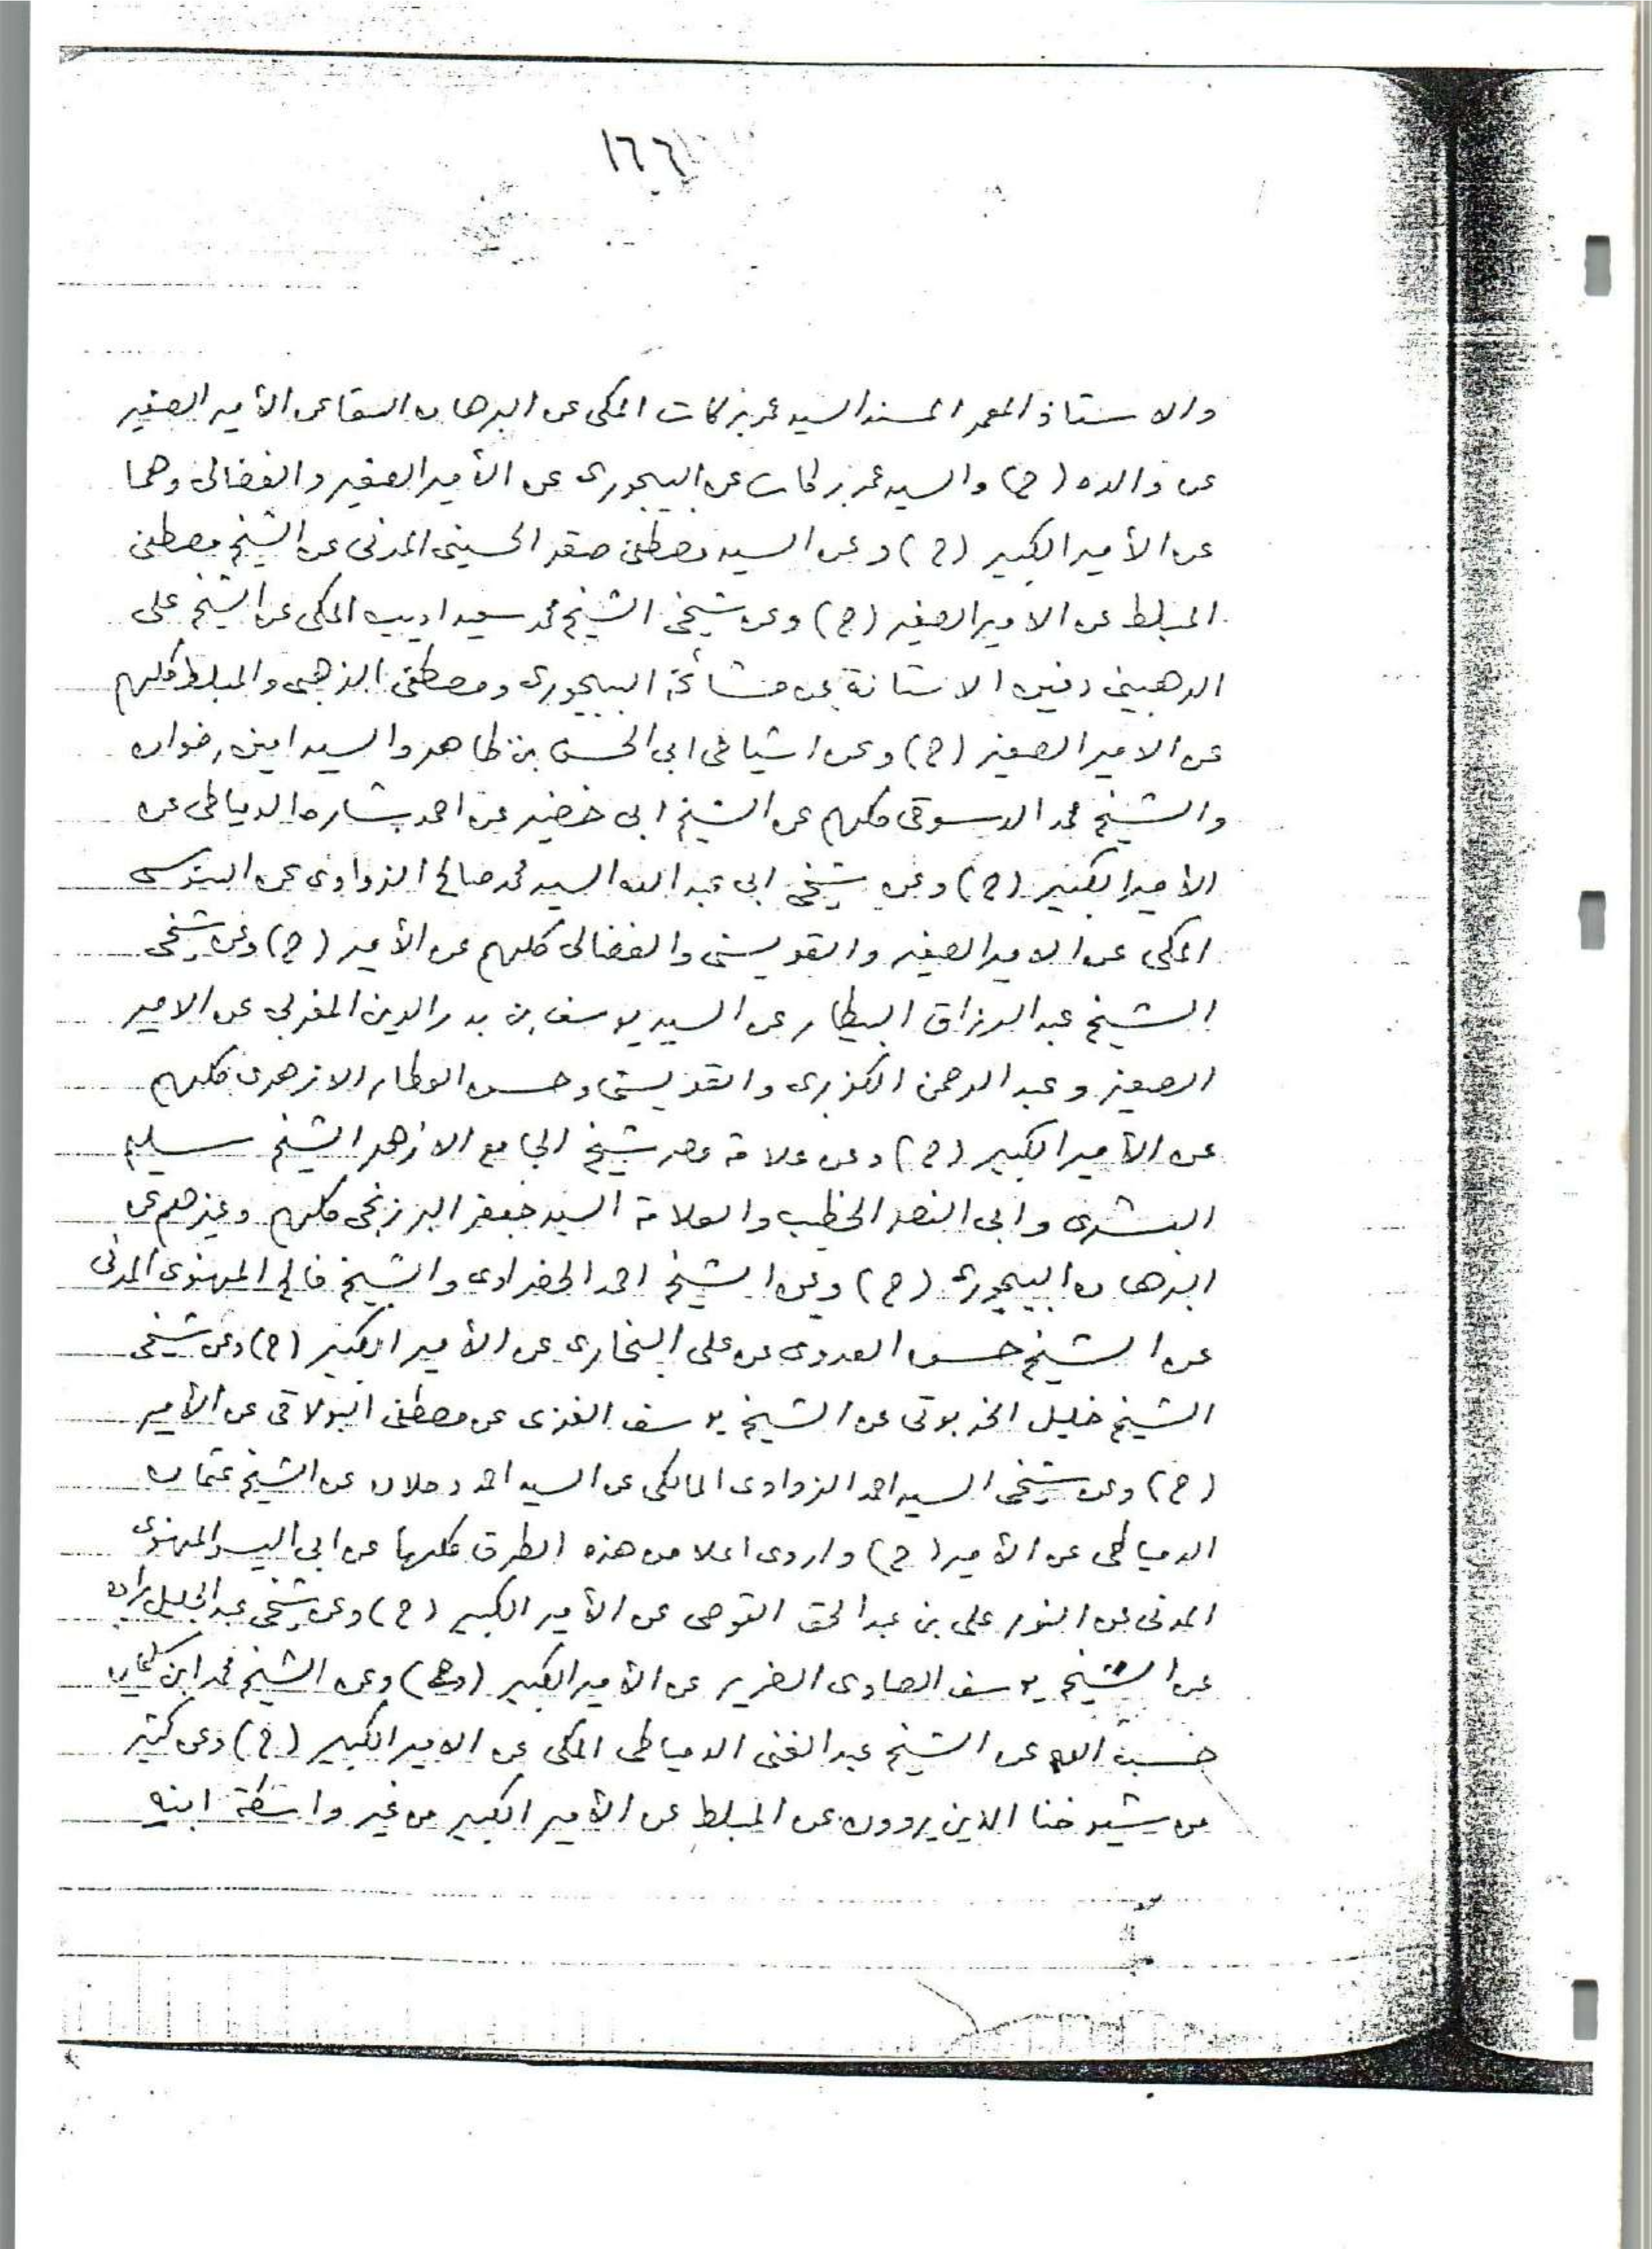 ١٦٦
والاستاذ المعمر المسند السيد عمر بركات المكى عن البرهان السقا عن الأمير الصغير
عن والده (ح) والسيد عمر بركات عن البيجورى عن الأمير الصغير والفضالى وهما
عن الأمير الكبير (ح) وعن السيد مصطفى صقر الحسينى المدنى عن الشيخ مصطفى
المبلط عن الامير الصغير (ح) وعن شيخى الشيخ محمد سعيد اديب المكى عن الشيخ على
الرهبينى دفين الاستانة عن مشائخه البيجورى ومصطفى الذهبى والمبلط كلهم
عن الامير الصغير (ح) وعن اشياخى ابى الحسن بن طاهر والسيد امين رضوان
والشيخ محمد الدسوقى كلهم عن الشيخ ابى خضير عن احمد بشارة الدمياطى عن
الأمير الكبير (ح) وعن شيخى ابى عبد الله السيد محمد صالح الزواوى عن السنوسى
المكى عن الامير الصغير والقويسنى والفضالى كلهم عن الأمير (ح) وعن شيخى
الشيخ عبد الرزاق البيطار عن السيد يوسف بن بدر الدين المغربى عن الامير
الصغير وعبد الرحمن الكزبرى والقويسنى وحسن العطار الازهرى كلهم
عن الأمير الكبير (ح) وعن علامة مصر شيخ الجامع الازهر الشيخ سليم
البشرى وابى النصر الخطيب والعلامة السيد جعفر البرزنجى كلهم وغيرهم عن
البرهان البيجورى (ح) وعن الشيخ احمد الحضراوى والشيخ فالح المهنوى المدنى
عن الشيخ حسن العدوى عن على البخارى عن الأمير الكبير (ح) وعن شيخى
الشيخ خليل الخربوتى عن الشيخ يوسف الغزى عن مصطفى البولاقى عن الأمير
(ح) وعن شيخى السيد احمد الزواوى المالكى عن السيد احمد دحلان عن الشيخ عثمان
الدمياطى عن الأمير (ح) واروى اعلا من هذه الطرق كلها عن ابى اليسر المهنوى
المدنى عن النور على بن عبد الحق القوصى عن الأمير الكبير (ح) وعن شيخى عبد الجليل براده
عن الشيخ يوسف الصاوى الضرير عن الأمير الكبير (ح) وعن الشيخ محمد ابن سليمان
حسب الله عن الشيخ عبد الغنى الدمياطى المكى عن الامير الكبير (ح) وعن كثير
من شيوخنا الذين يروون عن المبلط عن الأمير الكبير من غير واسطة ابنه